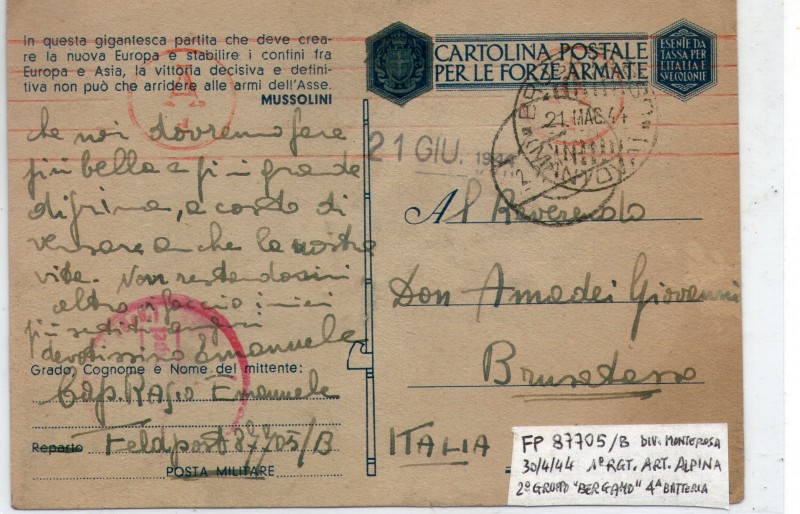 In questa gigantesca partita che deve crea-
re la nuova Europa e stabilire i confini fra
Europa e Asia, la vittoria decisiva e defini-
tiva non può che arridere alle armi dell'Asse.
MUSSOLINI
CARTOLINA POSTALE
PER LE FORZE ARMATE
ESENTE DA
TASSA PER
L'ITALIA E
SVE COLONIE
21. MAG. 44
21 GIU. 1944
che noi dovremo fare
più bella e più grande
di prima, a costo di
versare anche la nostra
vita. Non restandomi
altro faccio i miei
più sentiti auguri
devotissimo Emanuele
Al Reverendo
Don Amadei Giovanni
ITALIA
Grado, Cognome e Nome del mittente:
Cap. Emanuele
Reparto Feldpost 87705/B
POSTA MILITARE
FP 87705/B DIV. MONTEROSA
30/4/44 1º RGT. ART. ALPINA
2º GRUPPO "BERGAMO" 4ª BATTERIA